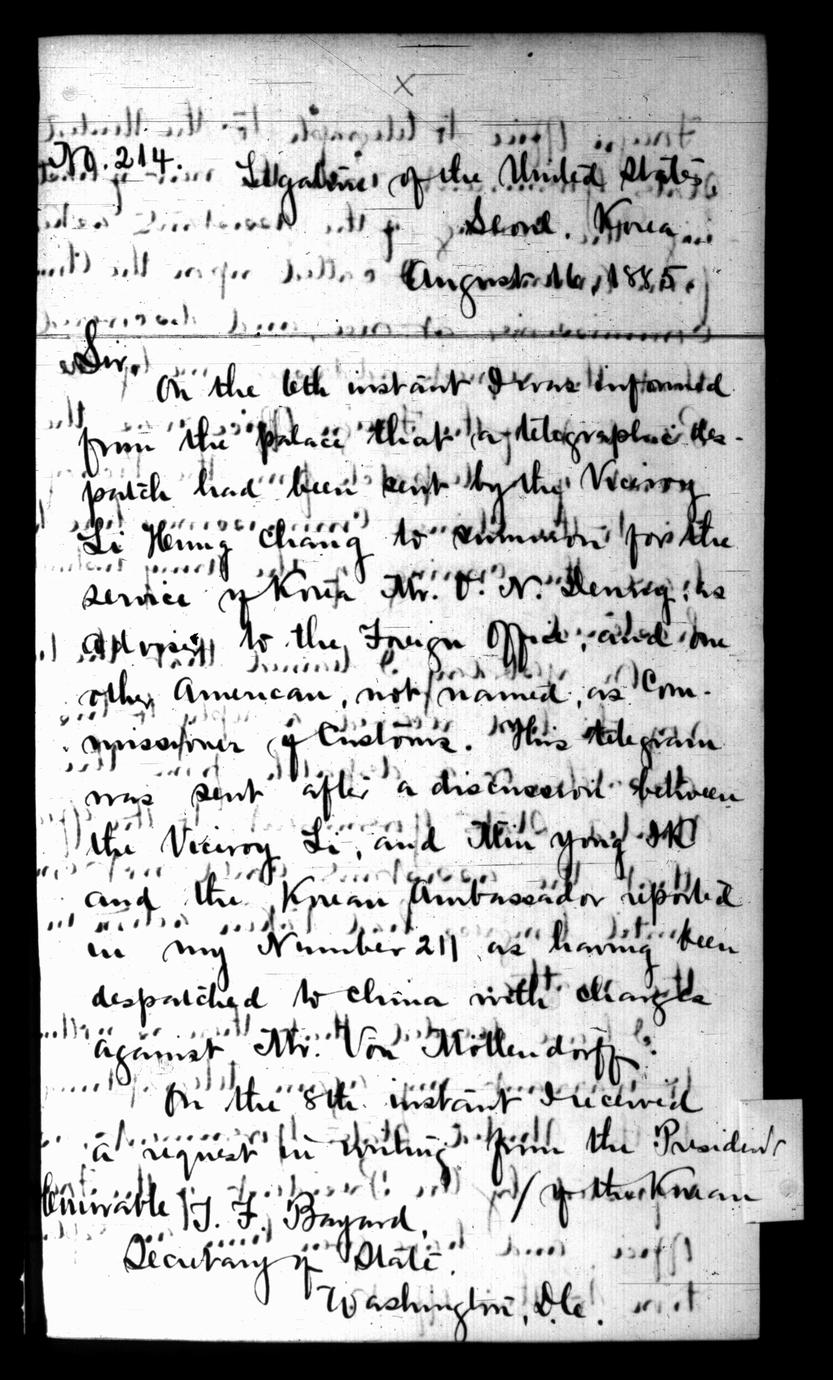 No. 214.
Legation of the United States
Seoul, Korea
August 16, 1885.
Sir,
On the 6th instant I was informed
from the palace that a telegraphic des-
patch had been sent by the Viceroy
Li Hung Chang to summon for the
service of Korea Mr. O. N. Denny, as
adviser to the Foreign Office, and one
other American, not named, as Com-
missioner of Customs. This telegram
was sent after a discussion between
the Viceroy Li, and Min Yong IK
and the Korean Ambassador reported
in my Number 211 as having been
despatched to China with charges
against Mr. Von Möllendorff.
On the 8th instant I received
a request in writing from the President
/ of the Korean
Honorable T. F. Bayard,
Secretary of State.
Washington, D.C.